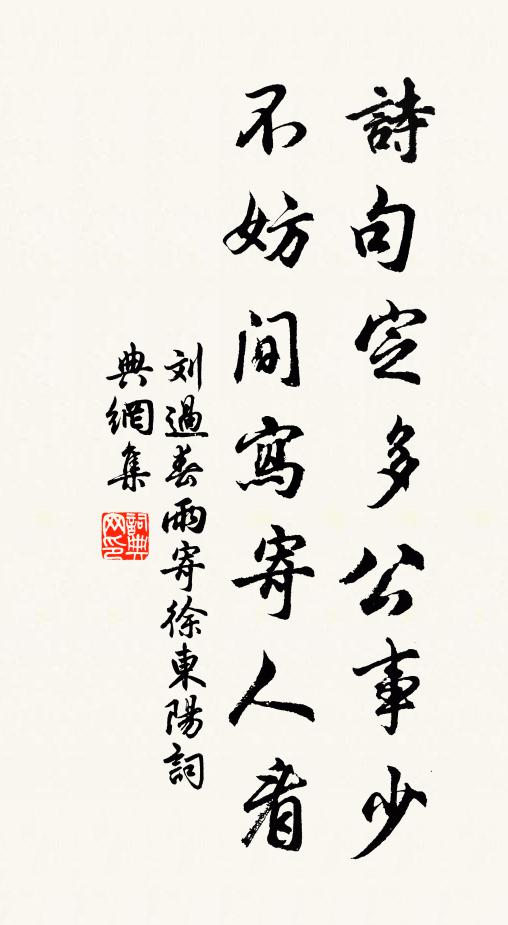 詩句定多公事少
不妨閒寫寄人看
刘過春雨寄徐東陽詞
典網集
詞典
网印